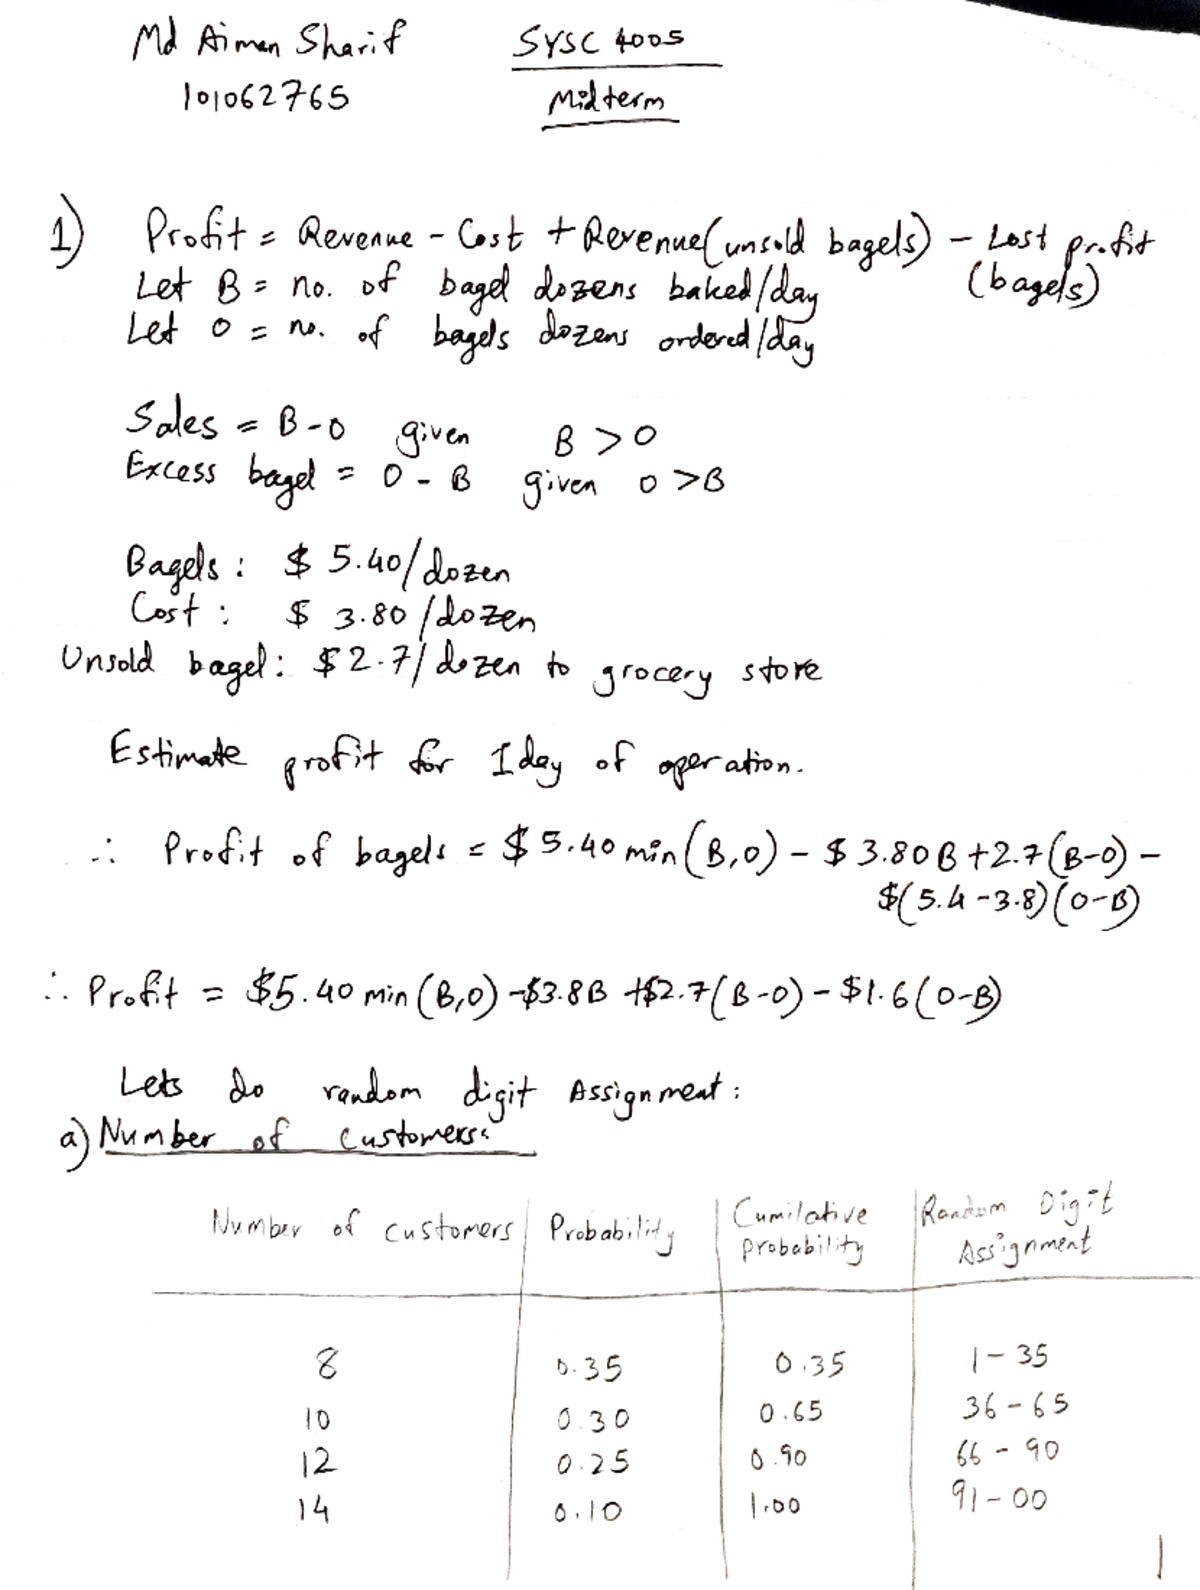 Md Aiman Sharif SYSC 4005
101062765 Midterm
1) Profit = Revenue - Cost + Revenue(unsold bagels) - Lost profit
(bagels)
Let B = no. of bagel dozens baked/day
Let O = no. of bagels dozens ordered/day
Sales = B-O given B > O
Excess bagel = O - B given O > B
Bagels : $ 5.40/dozen
Cost : $ 3.80/dozen
Unsold bagel: $2.7/dozen to grocery store
Estimate profit for 1day of operation.
∴ Profit of bagels = $5.40 min(B,O) - $3.80B +2.7(B-O) -
$(5.4-3.8)(O-B)
∴ Profit = $5.40 min(B,O) -$3.8B +$2.7(B-O) - $1.6(O-B)
Lets do random digit Assignment :
a) Number of customers:
Number of customers Probability Cumilative probability Random Digit Assignment
8 0.35 0.35 1-35
10 0.30 0.65 36-65
12 0.25 0.90 66-90
14 0.10 1.00 91-00
1